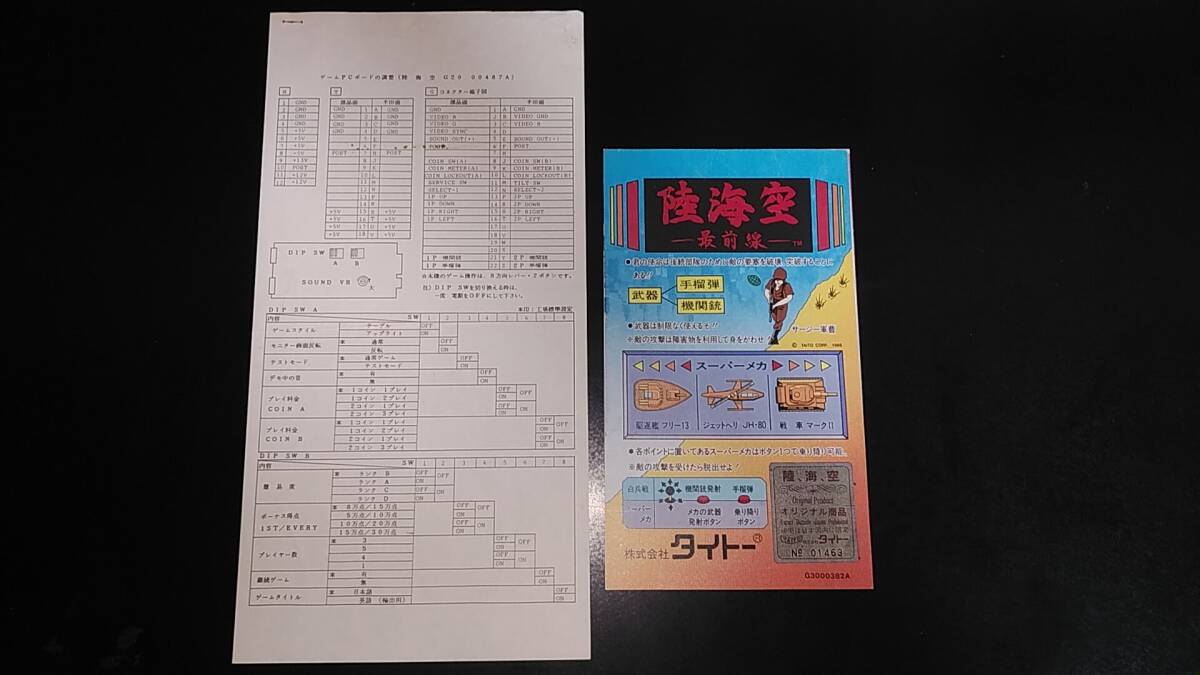 ゲームPCボードの調整（陸 海 空 G20 00487A）
H
1 GND
2 GND
3 GND
4 GND
5 +5V
6 +5V
7 +5V
8 +5V
9 +13V
10 POST
11 +12V
12 +12V
部品面 半田面
GND 1 A GND
GND 2 B GND
GND 3 C GND
GND 4 D GND
5 E
6 F
POST 7 H POST
8 J
9 K
10 L
11 M
12 N
13 P
14 R
+5V 15 S +5V
+5V 16 T +5V
+5V 17 U +5V
+5V 18 V +5V
G コネクター端子図
部品面 半田面
GND 1 A GND
VIDEO R 2 B VIDEO GND
VIDEO G 3 C VIDEO B
VIDEO SYNC 4 D
SOUND OUT(+) 5 E SOUND OUT(-)
POST 6 F POST
7 H
COIN SW(A) 8 J COIN SW(B)
COIN METER(A) 9 K COIN METER(B)
COIN LOCKOUT(A) 10 L COIN LOCKOUT(B)
SERVICE SW 11 M TILT SW
SELECT-1 12 N SELECT-2
1P UP 13 P 2P UP
1P DOWN 14 R 2P DOWN
1P RIGHT 15 S 2P RIGHT
1P LEFT 16 T 2P LEFT
17 U
18 V
19 W
20 X
1P 機関銃 21 Y 2P 機関銃
1P 手榴弾 22 Z 2P 手榴弾
DIP SW
A B
SOUND VR 大
☆本機のゲーム操作は、8方向レバー・2ボタンです。
注）DIP SWを切り換える時は、
一度 電源をOFFにして下さい。
DIP SW A
※印：工場標準設定
内容 SW 1 2 3 4 5 6 7 8
ゲームスタイル テーブル OFF
アップライト ON
モニター画面反転 ※ 通常 OFF
反転 ON
テストモード ※ 通常ゲーム OFF
テストモード ON
デモ中の音 ※ 有 OFF
無 ON
プレイ料金
COIN A
※ 1コイン 1プレイ OFF OFF
1コイン 2プレイ ON
2コイン 1プレイ OFF ON
2コイン 3プレイ ON
プレイ料金
COIN B
※ 1コイン 1プレイ OFF OFF
1コイン 2プレイ ON
2コイン 1プレイ OFF ON
2コイン 3プレイ ON
DIP SW B
内容 SW 1 2 3 4 5 6 7 8
難易度
※ ランク B OFF OFF
ランク A ON
ランク C OFF ON
ランク D ON
ボーナス得点
1ST/EVERY
※ 8万点／15万点 OFF OFF
5万点／10万点 ON
10万点／20万点 OFF ON
15万点／30万点 ON
プレイヤー数
※ 3 OFF OFF
5 ON
4 OFF ON
1 ON
継続ゲーム ※ 有 OFF
無 ON
ゲームタイトル ※ 日本語 OFF
英語（輸出用） ON
陸海空
―最前線―TM
●君の使命は後続部隊のために敵の要塞を破壊、突破することに
ある!!
武器
手榴弾
機関銃
●武器は制限なく使えるぞ!!
※敵の攻撃は障害物を利用して身をかわせ!
サージー軍曹
© TAITO CORP. 1986
スーパーメカ
駆逐艦 フリー13
ジェットヘリ JH-80
戦車 マークII
●各ポイントに置いてあるスーパーメカはボタン1つで乗り降り可能。
※敵の攻撃を受けたら脱出せよ!
白兵戦 機関銃発射 手榴弾
スーパーメカ メカの武器発射ボタン 乗り降りボタン
株式会社 タイトー®
陸、海、空
Original Product
オリジナル商品
タイトー
No 01463
G3000382A